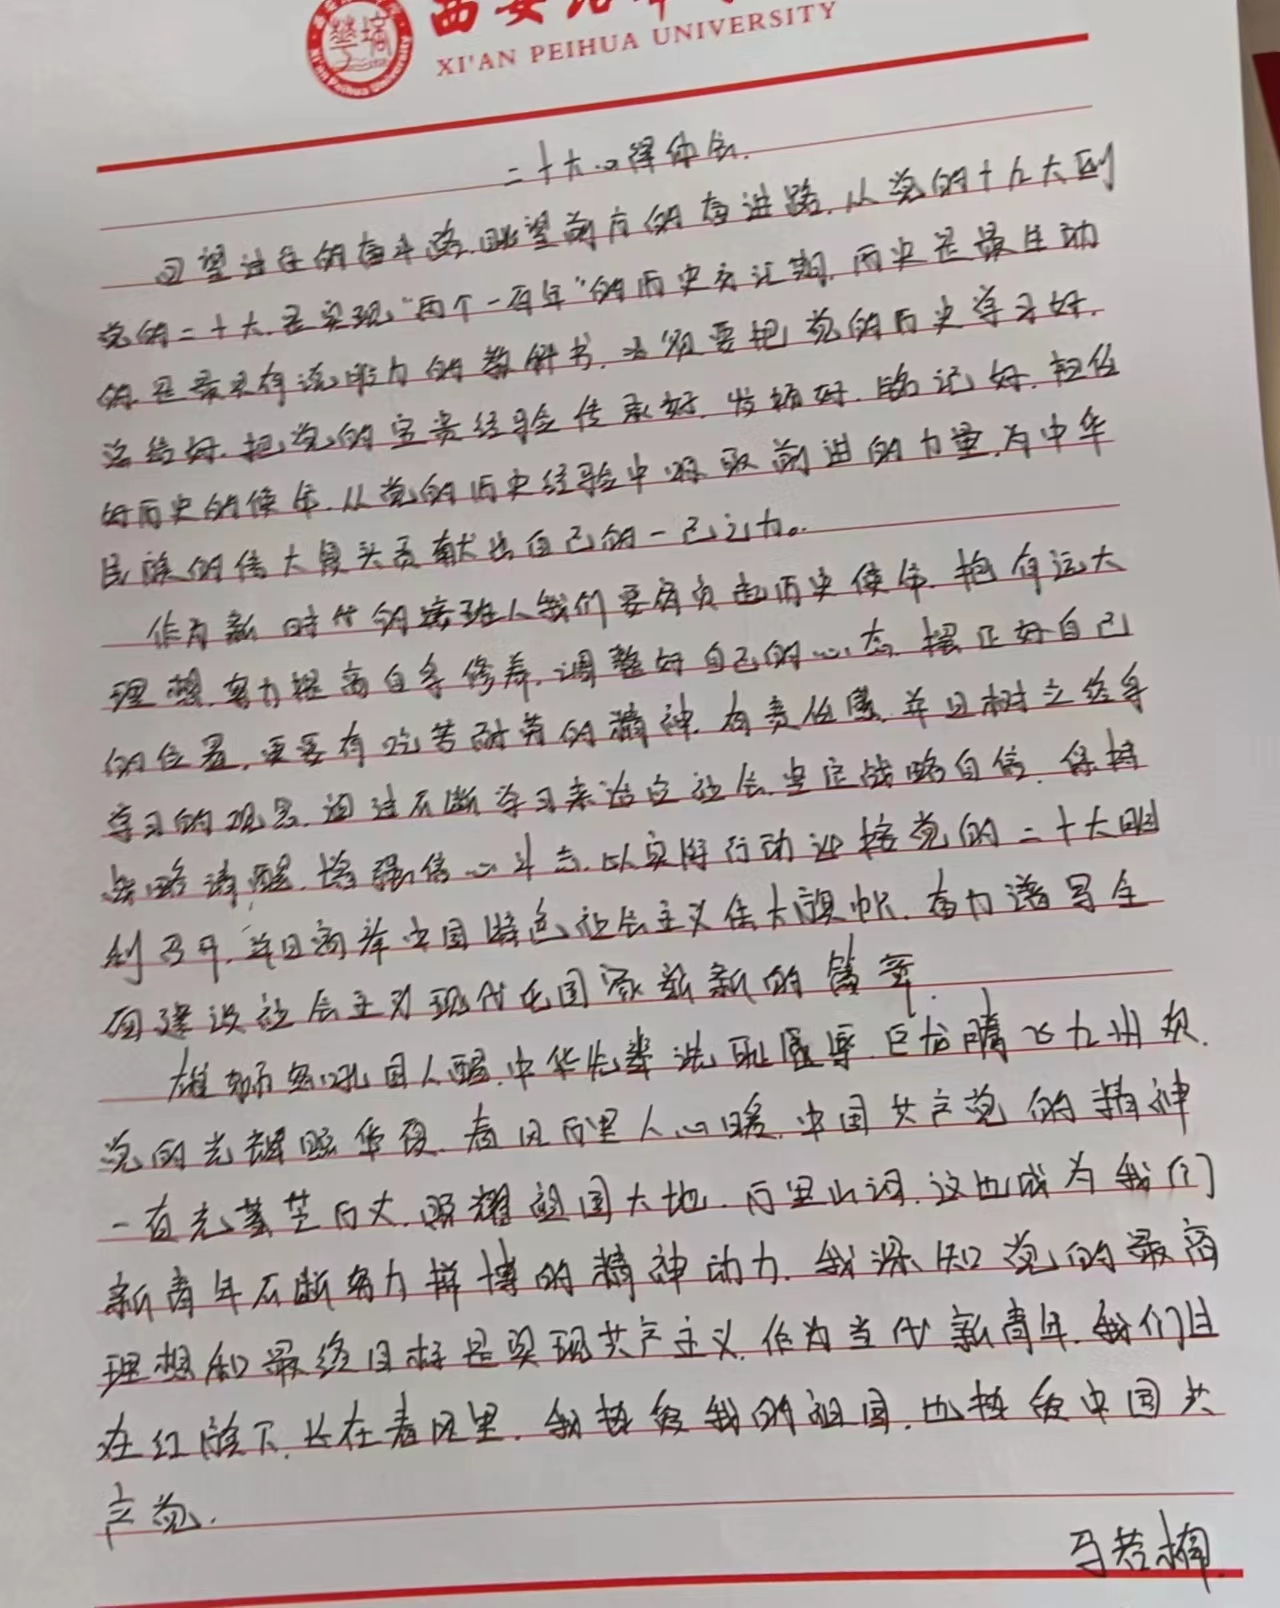 西安培华
XI'AN PEIHUA UNIVERSITY
二十大心得体会.
回望过往的奋斗路,眺望前方的奋进路.从党的十九大到
党的二十大.是实现"两个一百年"的历史交汇期,历史是最生动
的.是最具有说服力的教科书,必须要把党的历史学习好.
总结好.把党的宝贵经验传承好.发扬好.铭记好.担任
好历史的使命.从党的历史经验中汲取前进的力量,为中华
民族的伟大复兴贡献出自己的一己之力。
作为新时代的接班人我们要肩负起历史使命.抱有远大
理想.努力提高自身修养.调整好自己的心态.摆正好自己
的位置,更要有吃苦耐劳的精神.有责任感.并且树立终身
学习的观念.通过不断学习来适应社会.坚定战略自信.保持
战略清醒.增强信心斗志.以实际行动迎接党的二十大胜
利召开,并且高举中国特色社会主义伟大旗帜.奋力谱写全
面建设社会主义现代化国家崭新的篇章.
雄狮怒吼国人醒.中华先辈洗耻辱.巨龙腾飞九州欢.
党的光辉照华夏.春风万里人心暖.中国共产党的精神
一直光芒万丈.照耀祖国大地.万里山河.这也成为我们
新青年不断努力拼搏的精神动力.我深知党的最高
理想和最终目标是实现共产主义.作为当代新青年.我们生
在红旗下.长在春风里.我热爱我的祖国.也热爱中国共
产党.
马若楠